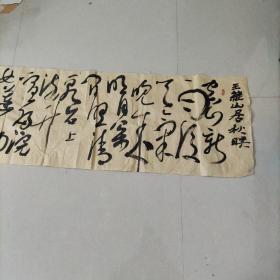 王維山居秋暝
空山新
雨後
天氣
晚來秋
明月松
間照清
泉石上
流竹
喧歸浣
女蓮動